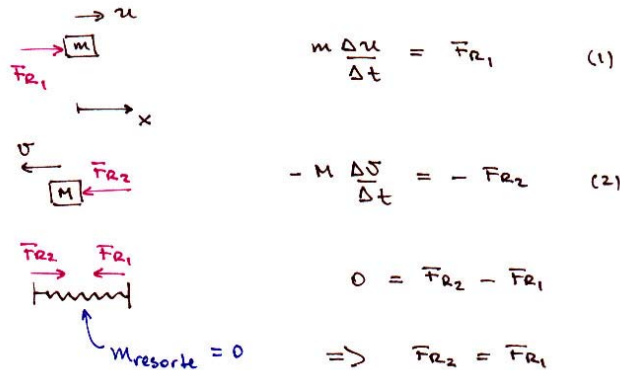 u
m
F̄R1
m Δu/Δt = F̄R1 (1)
x
v
F̄R2
M
- M Δv/Δt = - F̄R2 (2)
F̄R2 F̄R1
0 = F̄R2 - F̄R1
mresorte = 0
=> F̄R2 = F̄R1